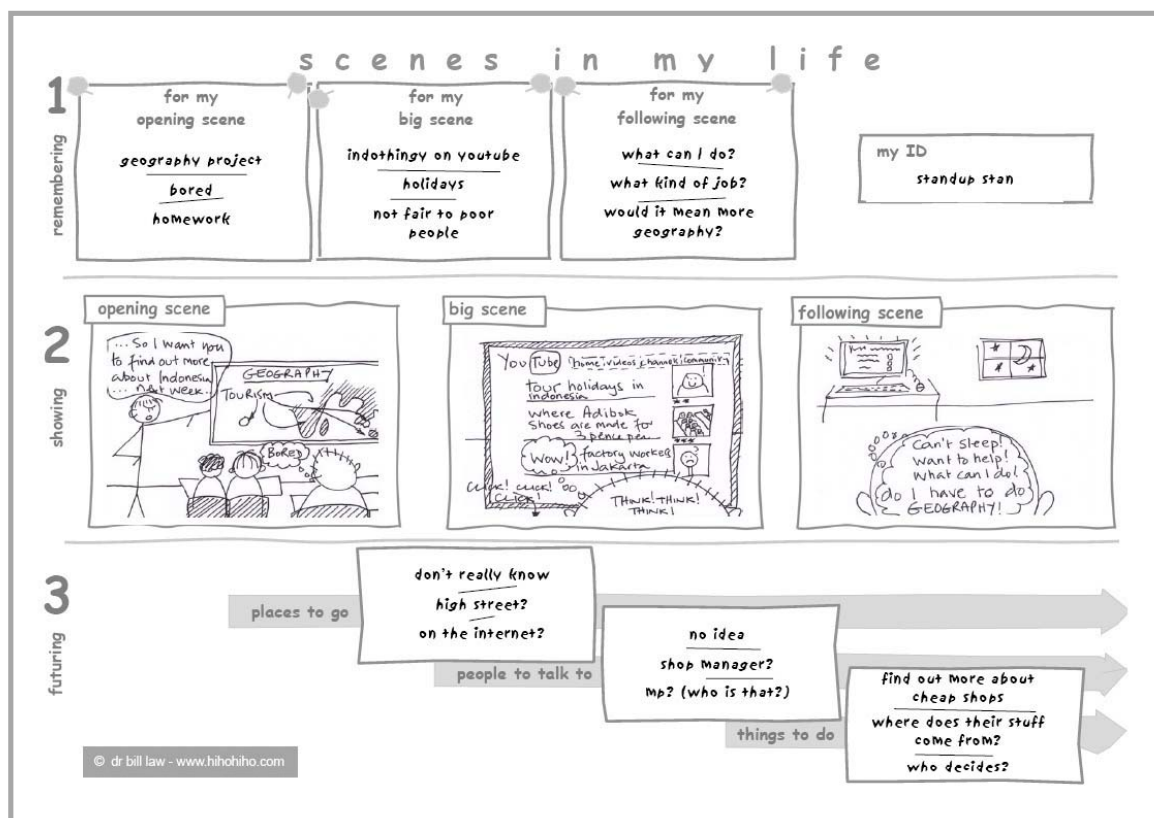 scenes in my life
1
remembering
for my
opening scene
geography project
bored
homework
for my
big scene
indothingy on youtube
holidays
not fair to poor
people
for my
following scene
what can I do?
what kind of job?
would it mean more
geography?
my ID
standup stan
2
showing
opening scene
...So I want you
to find out more
about Indonesia
... next week...
GEOGRAPHY
TOURISM
BORED
big scene
YouTube home videos channels community
tour holidays in
indonesia
where Adibok
shoes are made for
3 pence per
Wow! factory worker
in Jakarta
CLICK! CLICK!
CLICK!
THINK! THINK!
THINK!
following scene
Can't sleep!
want to help!
What can I do!
do I have to do
GEOGRAPHY!
3
futuring
places to go
don't really know
high street?
on the internet?
people to talk to
no idea
shop manager?
mp? (who is that?)
things to do
find out more about
cheap shops
where does their stuff
come from?
who decides?
© dr bill law - www.hihohiho.com